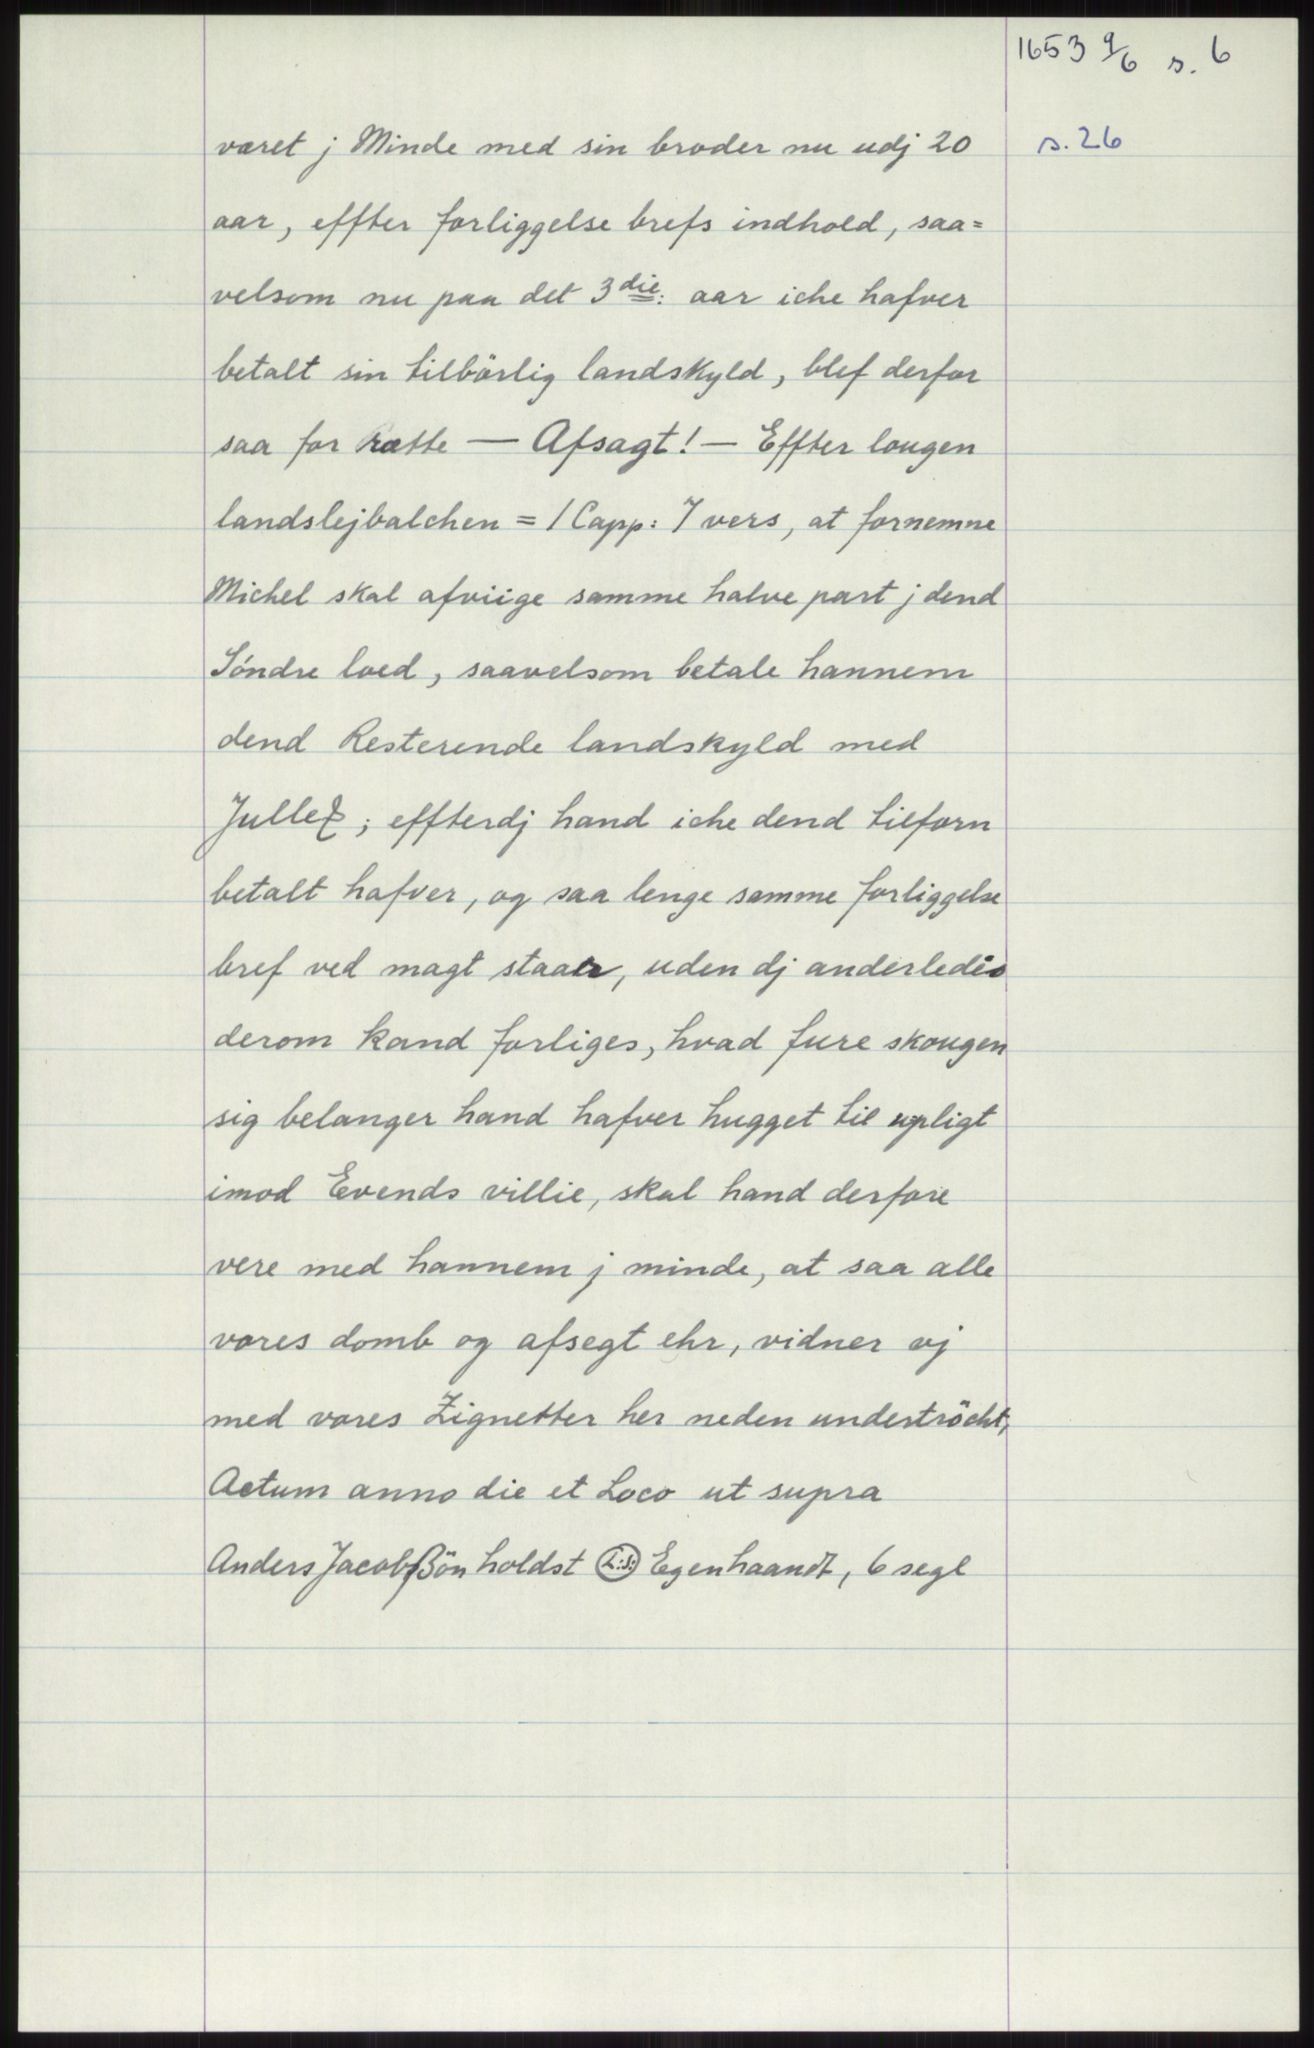 1653 9/6 s. 6
været j Minde med sin broder nu udj 20
s. 26
aar, effter forliggelse brefs indhold, saa=
velsom nu paa det 3die: aar iche hafver
betalt sin tilbörlig landskyld, blef derfor
saa for Rætte — Afsagt! — Effter lougen
landslejbalchen = 1 Capp: 7 vers, at fornemne
Michel skal afviige samme halve part j dend
Söndre loed, saavelsom betale hannem
dend Resterende landskyld med
; effterdj hand iche dend tilforn
betalt hafver, og saa lenge samme forliggelse
bref ved magt staar, uden dj anderledis
derom kand forliges, hvad fure skougen
sig belanger hand hafver hugget til upligt
imod Evends villie, skal hand derfore
vere med hannem j minde, at saa alle
vores domb og afsegt ehr, vidner vj
med vores Zignetter her neden underströcht,
Actum anno die et Loco ut supra
Anders Jacobs Bönholdst L:S: Egenhaandt, 6 segl